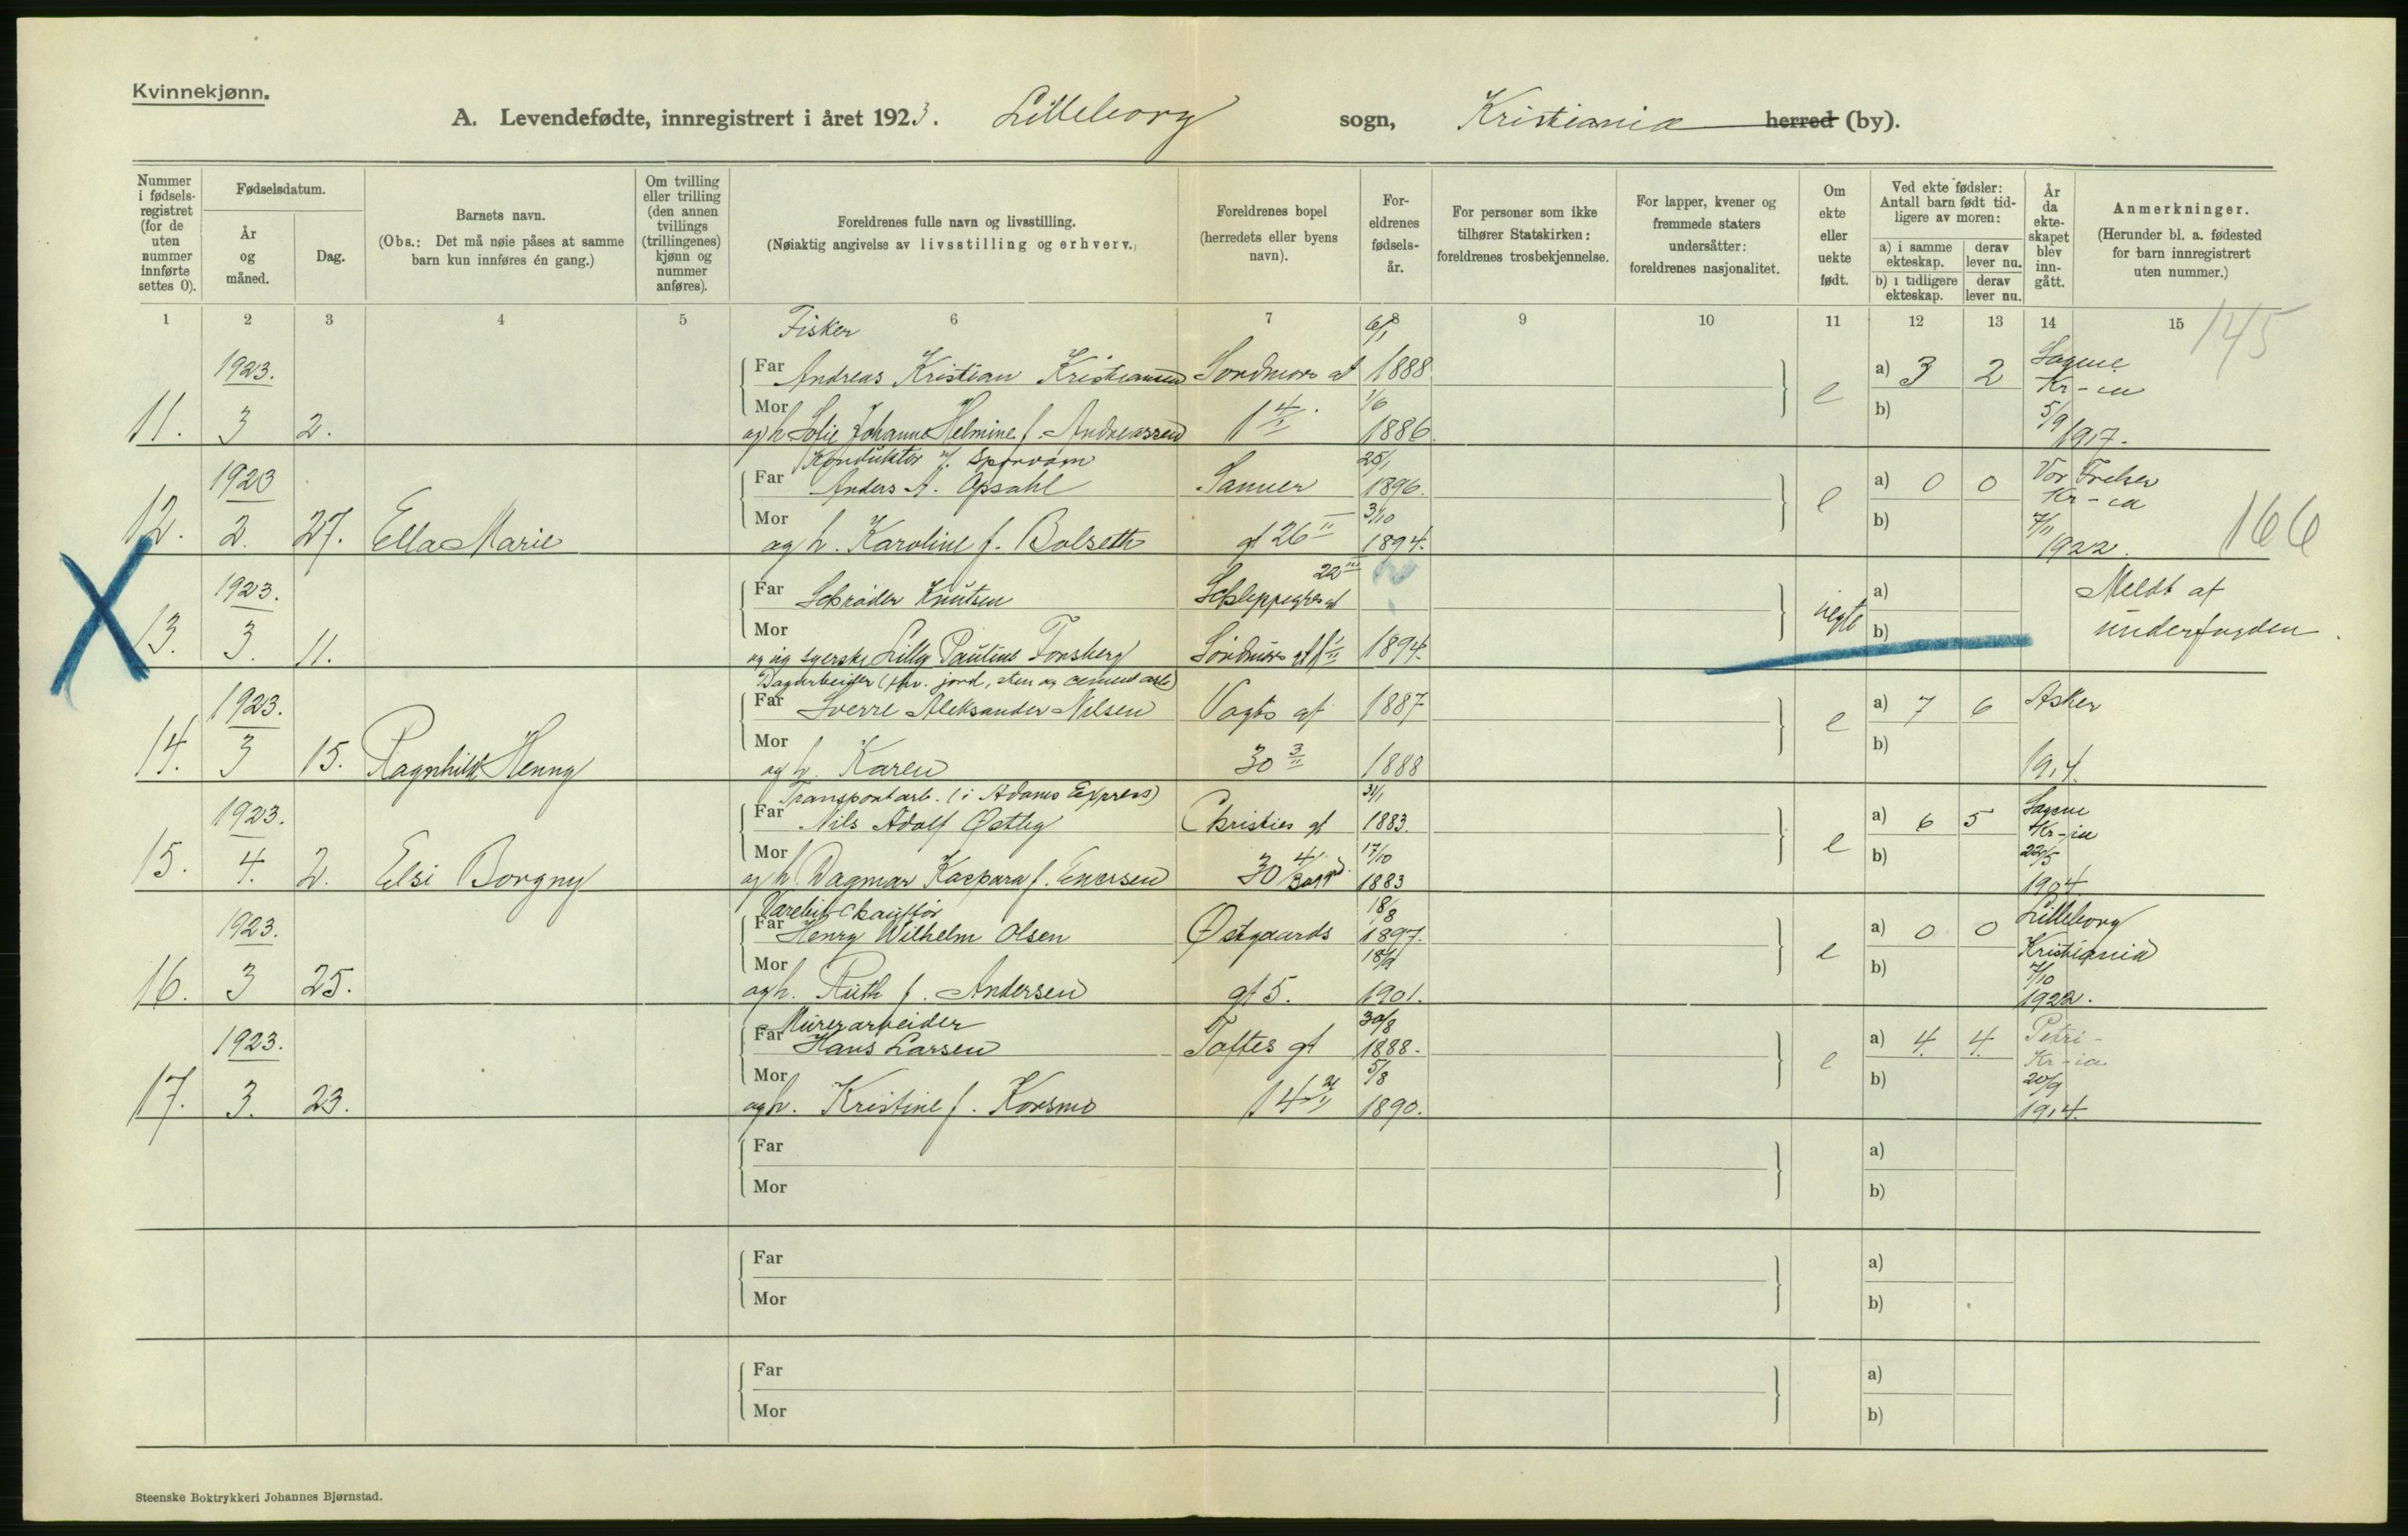 Kvinnekjønn.
A. Levendefødte, innregistrert i året 1923. Lilleborg sogn, Kristiania herred (by).
Nummer i fødsels-registret (for de uten nummer innførte settes 0).
Fødselsdatum.
År og måned.
Dag.
Barnets navn.
(Obs.: Det må nøie påses at samme barn kun innføres én gang.)
Om tvilling eller trilling (den annen tvillings (trillingenes) kjønn og nummer anføres).
Foreldrenes fulle navn og livsstilling.
(Nøiaktig angivelse av livsstilling og erhverv.)
Foreldrenes bopel (herredets eller byens navn).
For-eldrenes fødsels-år.
For personer som ikke tilhører Statskirken: foreldrenes trosbekjennelse.
For lapper, kvener og fremmede staters undersåtter: foreldrenes nasjonalitet.
Om ekte eller uekte født.
Ved ekte fødsler: Antall barn født tid-ligere av moren:
a) i samme ekteskap.
derav lever nu.
b) i tidligere ekteskap.
derav lever nu.
År da ekte-skapet blev inn-gått.
Anmerkninger.
(Herunder bl. a. fødested for barn innregistrert uten nummer.)
1 2 3 4 5 6 7 8 9 10 11 12 13 14 15
145
Fisker 6/1
1923. Far Andreas Kristian Kristiansen Sordmors gt 1888 a) 3 2 Sagene Kr-ia
11. 3 2. Mor og h. Sofie Johanne Helmine f. Andreassen 1 4/II 1/6 1886 e b) 5/9 1917.
Konduktør v. Sporvøin 25/1
1923 Far Anders A. Opsahl Sanner 1896. a) 0 0 Vor Frelser Kr-ia
12. 2. 27. Ella Marie Mor og h. Karoline f. Bolseth gt 26 II 3/10 1894. e b) 7/11 1922. 166
1923. Far Schrøder Knutsen Schleppegrels gt 22 III a) Meldt af
13. 3. 11. Mor og ug syerske Lilly Pauline Forsberg Sordmørs gt 1894. uegte b) underfogden.
Dagarbeider (hv. jord, sten og cement arb)
1923. Far Sverre Aleksander Nilsen Vogts gt 1887 a) 7 6 Asker
14. 3 15. Ragnhild Henny Mor og h. Karen 30 3/II 1888 e b) 1914.
Transportarb. (i Adams Express) 31/1
1923. Far Nils Adolf Østby Christies gt 1883. a) 6 5 Sagene Kr-ia
15. 4. 2. Elsi Borgny Mor og h. Dagmar Kaspara f. Enersen 30 4/ Bagg. 17/10 1883 e b) 22/5 1904.
Varebil chauffør 18/8
1923. Far Henry Wilhelm Olsen Østgaards 1897. a) 0 0 Lilleborg Kristiania
16. 3 25. Mor og h. Ruth f. Andersen gt 5. 18/9 1901. e b) 7/10 1922.
Murerarbeider 30/8
1923. Far Hans Larsen Toftes gt 1888. a) 4. 4. Petri - Kr-ia
17. 3. 23. Mor og h. Kristine f. Korsmo 14 5/8 1890. e b) 20/9 1914.
Far a)
Mor b)
Far a)
Mor b)
Far a)
Mor b)
Steenske Boktrykkeri Johannes Bjørnstad.